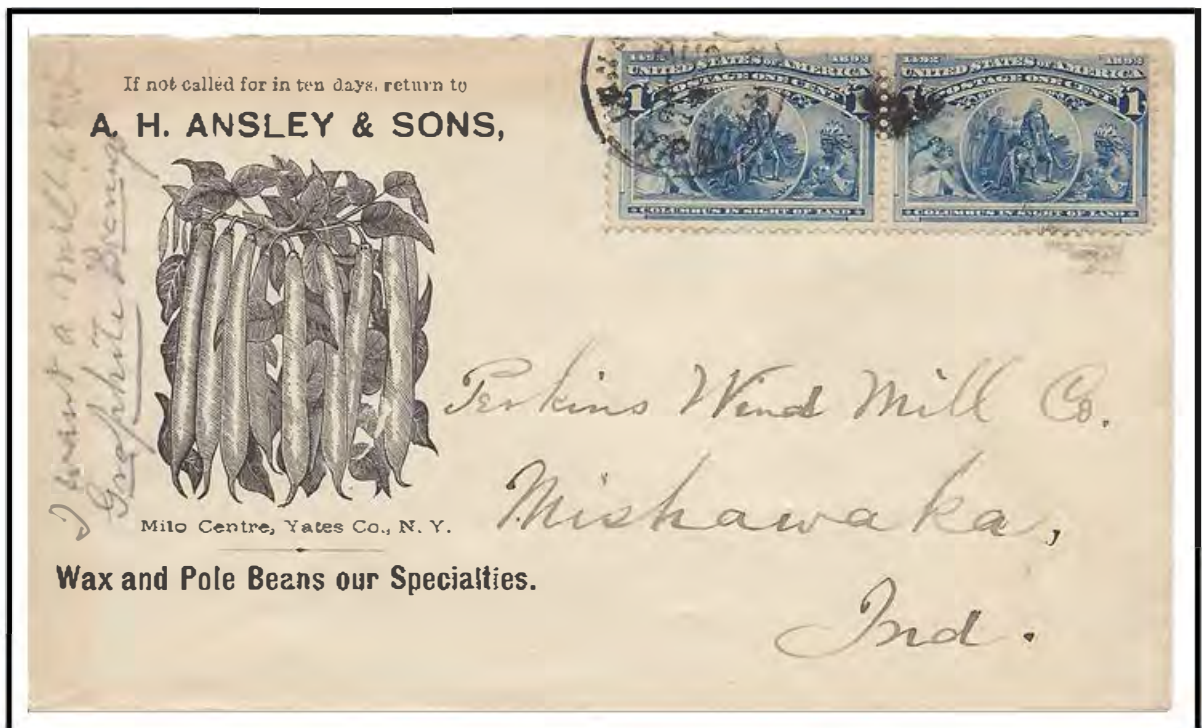 If not called for in ten days, return to
A. H. ANSLEY & SONS,
Milo Centre, Yates Co., N. Y.
Wax and Pole Beans our Specialties.
I want a mill
Graphite
1492 1892
UNITED STATES OF AMERICA
POSTAGE ONE CENT
1 1
COLUMBUS IN SIGHT OF LAND
1492 1892
UNITED STATES OF AMERICA
POSTAGE ONE CENT
1 1
COLUMBUS IN SIGHT OF LAND
Perkins Wind Mill Co.
Mishawaka,
Ind.